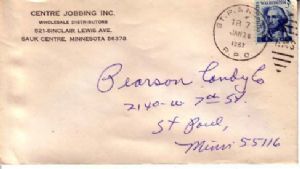 CENTRE JOBBING INC.
WHOLESALE DISTRIBUTORS
521 SINCLAIR LEWIS AVE.
SAUK CENTRE, MINNESOTA 56378
WASHINGTON
TR 7
JAN 26
1967
R.P.O.
Pearson Candy Co
2140-W 7th St.
St Paul,
Minn 55116